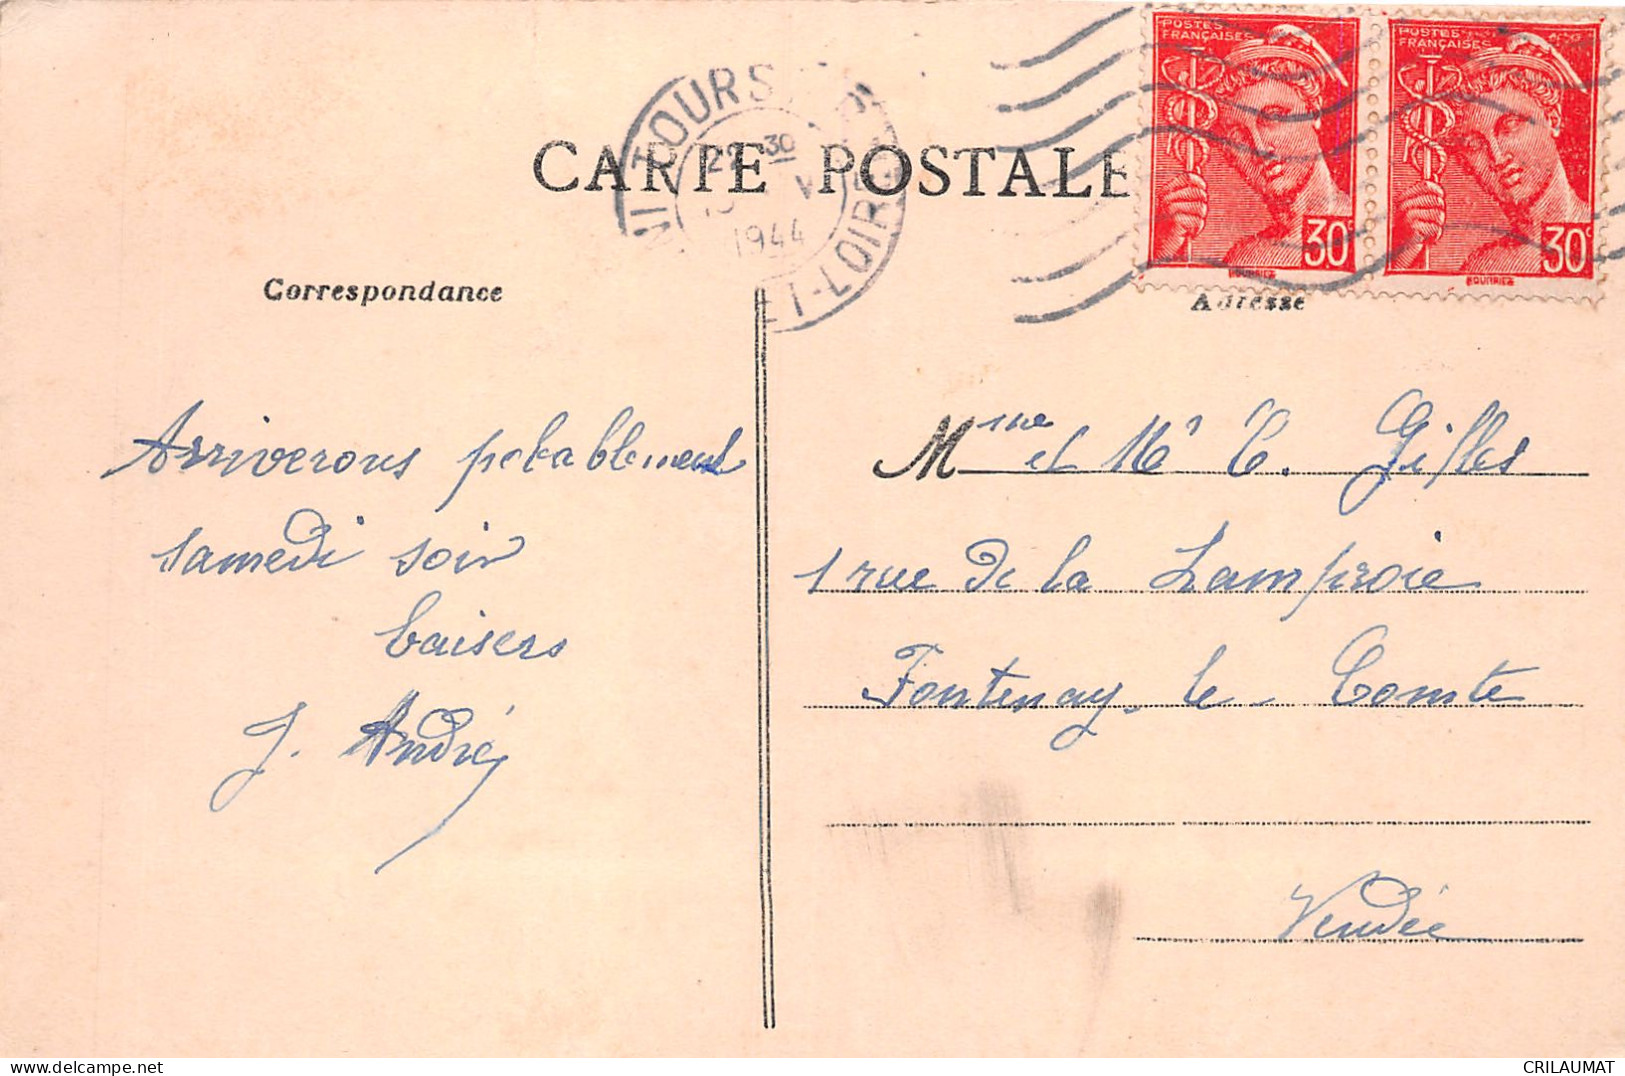 CARTE POSTALE
TOURS
22 30
V
1944
ET-LOIRE
POSTES
FRANÇAISES
30c
HOURRIEZ
POSTES
FRANÇAISES
30c
HOURRIEZ
Correspondance
Adresse
Arriverons probablement
samedi soir
baisers
J. André
Mme et Mr C. Gilles
1 rue de la Lamproie
Fontenay-le-Comte
Vendée
CRILAUMAT